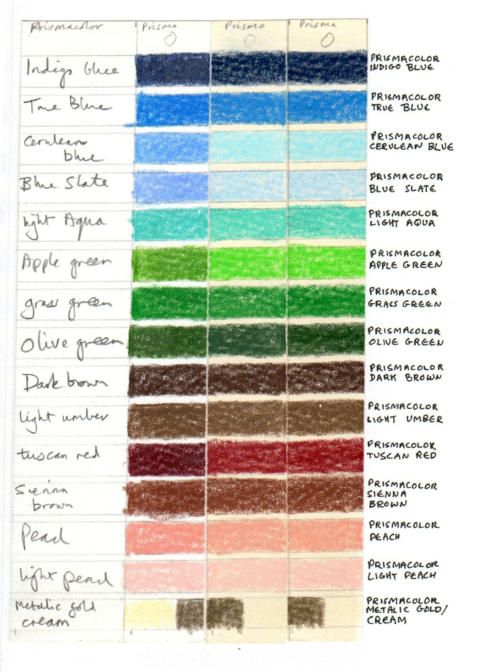 Prismacolor Prisma Prisma Prisma
Indigo blue
PRISMACOLOR
INDIGO BLUE
True Blue
PRISMACOLOR
TRUE BLUE
Cerulean
blue
PRISMACOLOR
CERULEAN BLUE
Blue Slate
PRISMACOLOR
BLUE SLATE
light Aqua
PRISMACOLOR
LIGHT AQUA
Apple green
PRISMACOLOR
APPLE GREEN
grass green
PRISMACOLOR
GRASS GREEN
Olive green
PRISMACOLOR
OLIVE GREEN
Dark brown
PRISMACOLOR
DARK BROWN
light umber
PRISMACOLOR
LIGHT UMBER
tuscan red
PRISMACOLOR
TUSCAN RED
Sienna
brown
PRISMACOLOR
SIENNA
BROWN
Peach
PRISMACOLOR
PEACH
light peach
PRISMACOLOR
LIGHT PEACH
Metalic gold
cream
PRISMACOLOR
METALIC GOLD/
CREAM